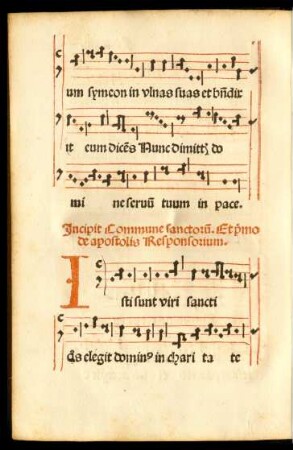 um symeon in vlnas suas et bñdix
it eum dicẽs Nunc dimittꝭ do
mi ne seruũ tuum in pace.
Incipit Commune sanctorũ. Et p̃mo
de apostolis Responsorium.
I
sti sunt viri sancti
q̃s elegit dominꝰ in chari ta te